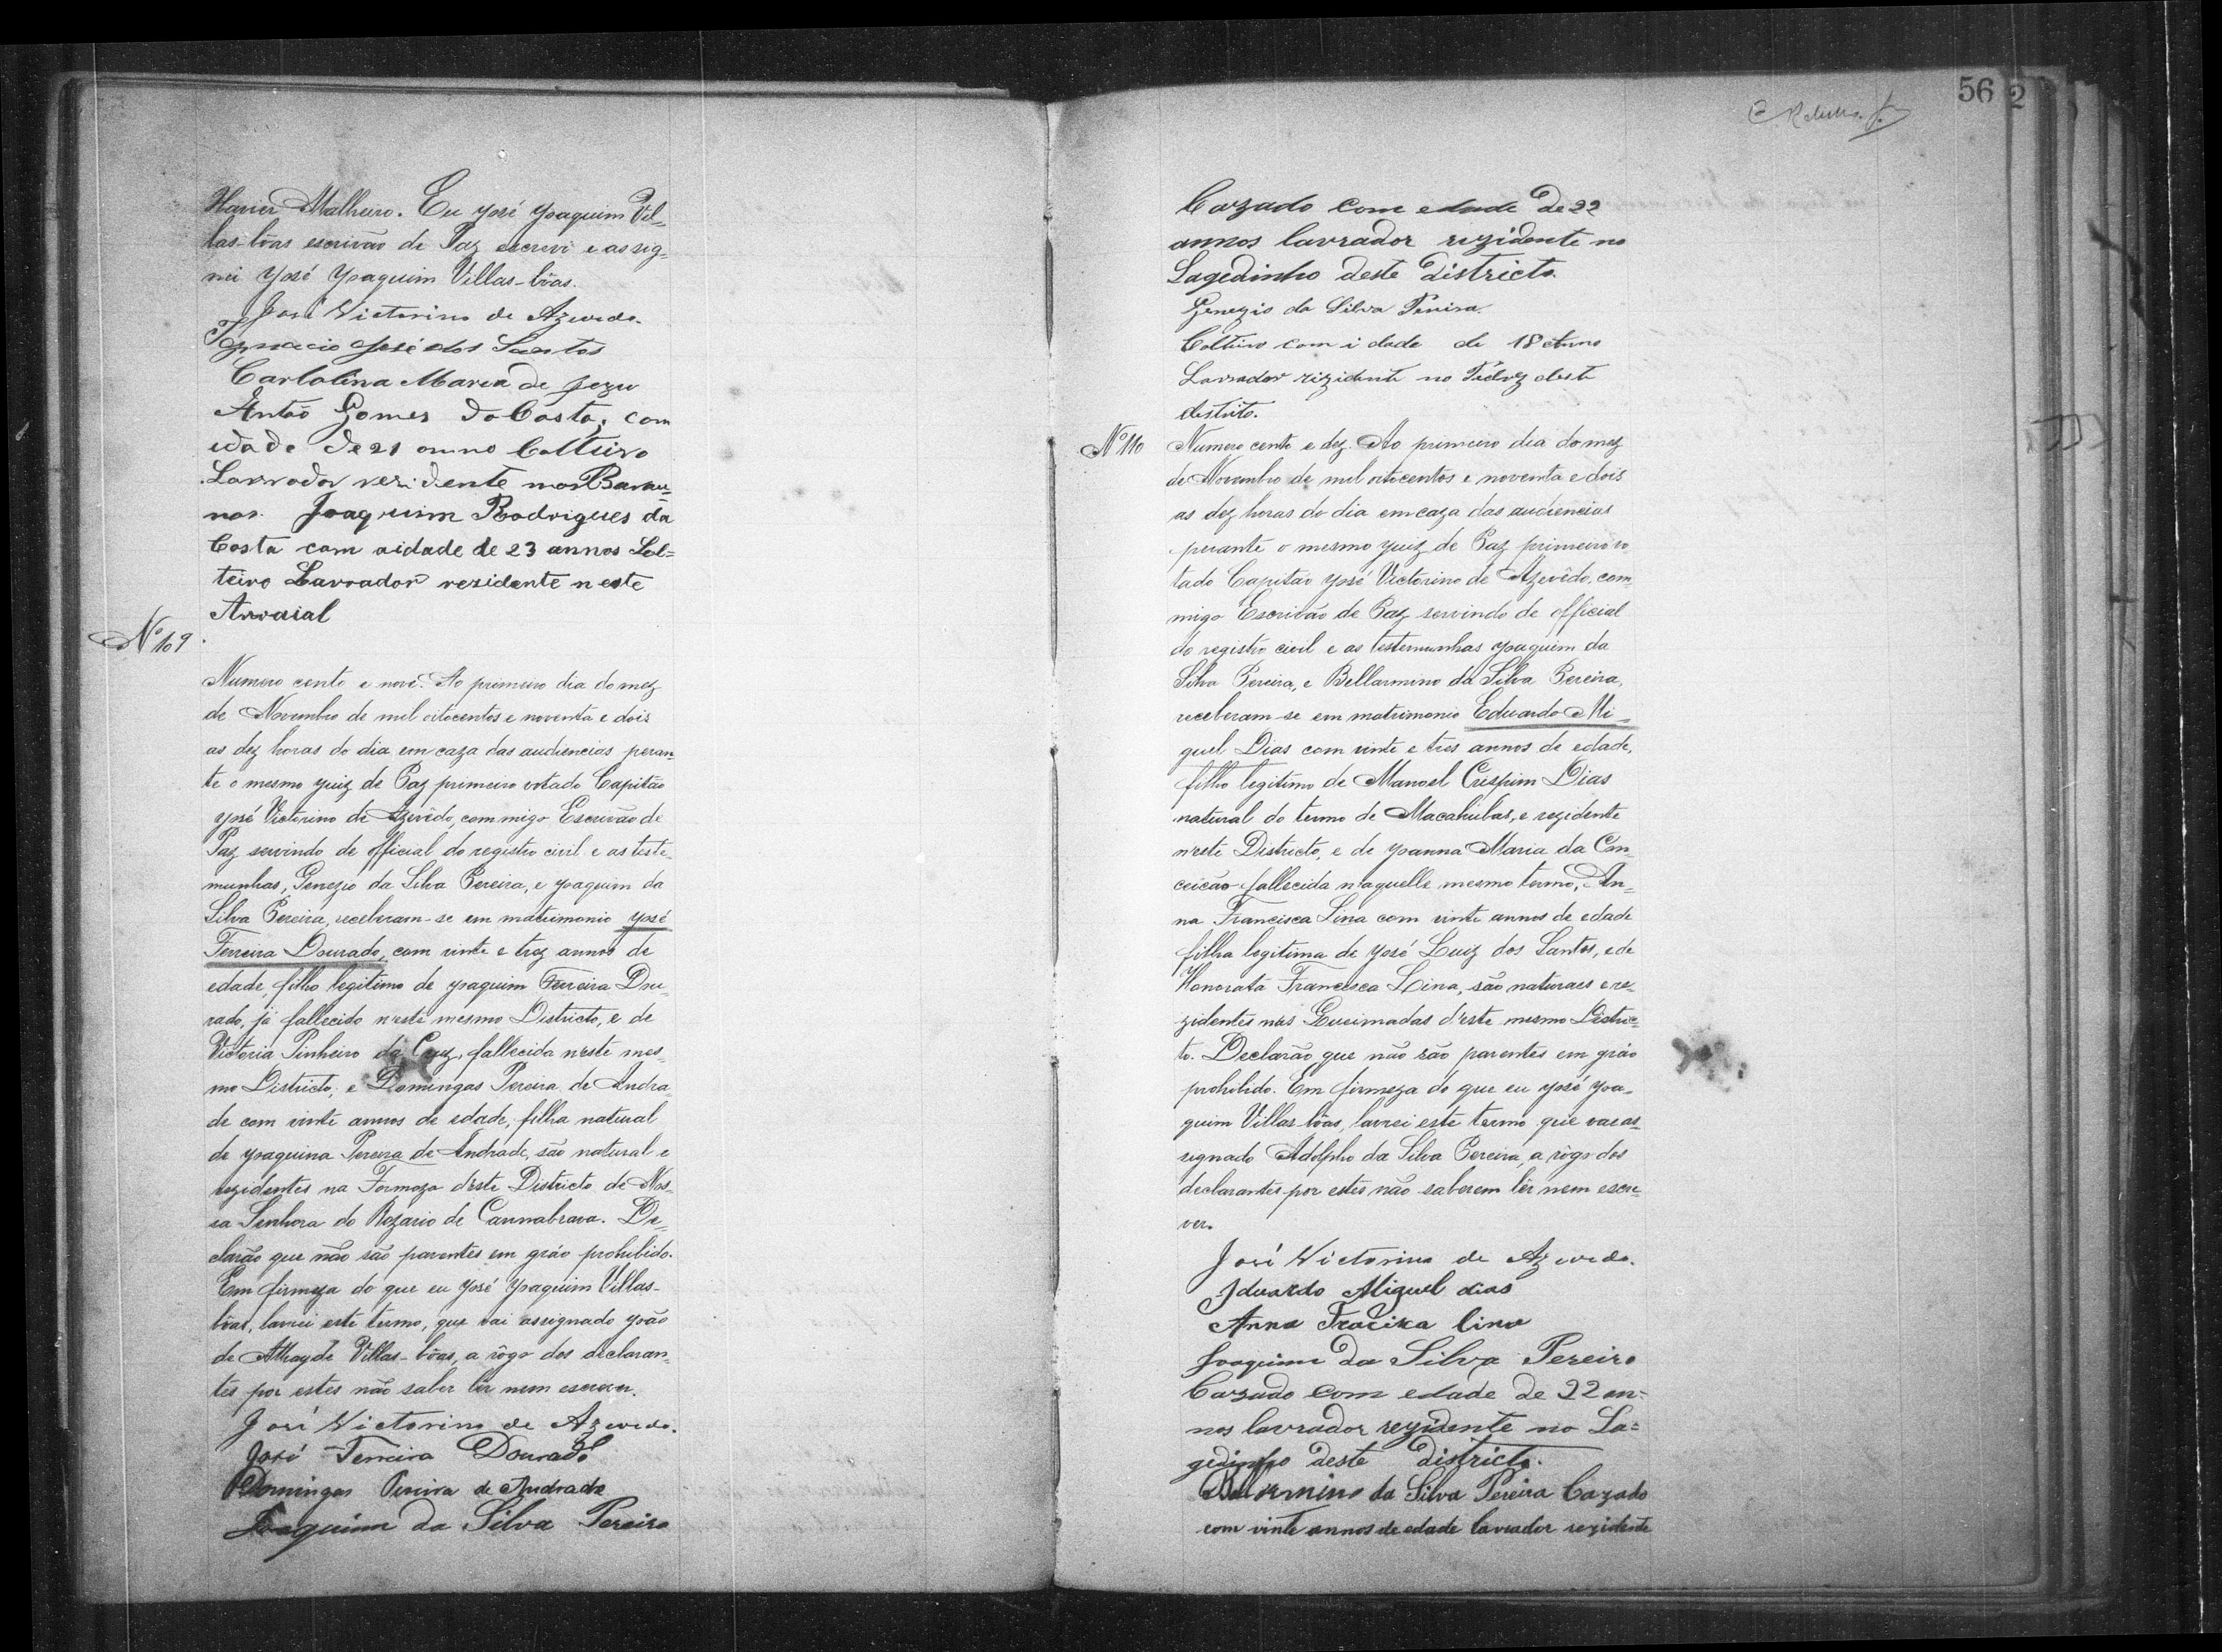 Xavier Malheiro. Eu José Joaquim Vil-
las-bôas escrivão de Paz escrevi e assig-
nei José Joaquim Villas-bôas.
José Victorino de Azevedo.
Ignacio José dos Santos
Carlolina Maria de Jezu
Antão Gomes da Costa, com
idade de 21 anno Colteiro
Lavrador rezidente nos
nos. Joaquim Rodrigues da
Costa com aidade de 23 annos Sol=
teiro Lavrador rezidente neste
Arraial
Nº 109
Numero cento e nove. Ao primeiro dia do mez
de Novembro de mil oitocentos e noventa e dois
as dez horas do dia em caza das audiencias peran-
te o mesmo juiz de Paz primeiro votado Capitão
José Victorino de Azevêdo, commigo Escrivão de
Paz servindo de official do registro civil e as teste-
munhas, Genezio da Silva Pereira, e Joaquim da
Silva Pereira, receberam-se em matrimonio José
Ferreira Dourado, com vinte e trez annos de
edade, filho legitimo de Joaquim Ferreira Dou-
rado, já fallecido n'este mesmo Districto, e de
Victoria Pinheiro da Cruz, fallecida n'este mes-
mo Districto; e Domingas Pereira de Andra-
de com vinte annos de edade, filha natural
de Joaquina Pereira de Andrade, são natural e
rezidentes na Formoza d'este Districto de Nos-
sa Senhora do Rozario de Cannabrava. De-
clarão que não são parentes em gráo prohibido.
Em firmeza do que eu José Joaquim Villas-
bôas, lavrei este termo, que vai assignado João
de Athayde Villas-bôas, a rôgo dos declaran-
tes por estes não saber lêr nem escrever.
José Victorino de Azevedo.
José Ferreira Dourado
Domingas Pereira de Andrade
Joaquim da Silva Pereira
56 2
Cazado com edade de 22
annos lavrador rezidente no
Lagedinho deste districto.
Genezio da Silva Pereira.
Colteiro com idade de 18 anno
Lavrador rizidente no deste
distrito.
Nº 110
Numero cento e dez. Ao primeiro dia do mez
de Novembro de mil oitocentos e noventa e dois
as dez horas do dia em caza das audiencias
perante o mesmo juiz de Paz primeiro vo
tado Capitão José Victorino de Azevêdo, com-
migo Escrivão de Paz servindo de official
do registro civil e as testemunhas Joaquim da
Silva Pereira, e Bellarmino da Silva Pereira,
receberam-se em matrimonio Eduardo Mi-
guel Dias com vinte e tres annos de edade,
filho legitimo de Manoel Crespim Dias
natural do termo de Macahubas, e rezidente
n'este Districto, e de Joanna Maria da Con-
ceicão fallecida n'aquelle mesmo termo, An-
na Francisca Lina com vinte annos de edade
filha legitima de José Luiz dos Santos, e de
Honorata Francisca Lina, são naturaes e re-
zidentes nas Queimadas d'este mesmo Distric-
to. Declarão que não são parentes em gráo
prohibido. Em firmeza do que eu José Joa-
quim Villas-bôas, lavrei este termo que vae as-
signado Adolpho da Silva Pereira, a rôgo dos
declarantes por estes não saberem lêr nem escre-
ver.
José Victorino de Azevedo.
Iduardo Miguel dias
Anna Fracika lina
Joaquim da Silva Pereira
Cazado com edade de 22 an-
nos lavrador rezidente no La=
gedinho deste districto.
Bellarmino da Silva Pereira Cazado
com vinte annos de edade lavrador rezidente